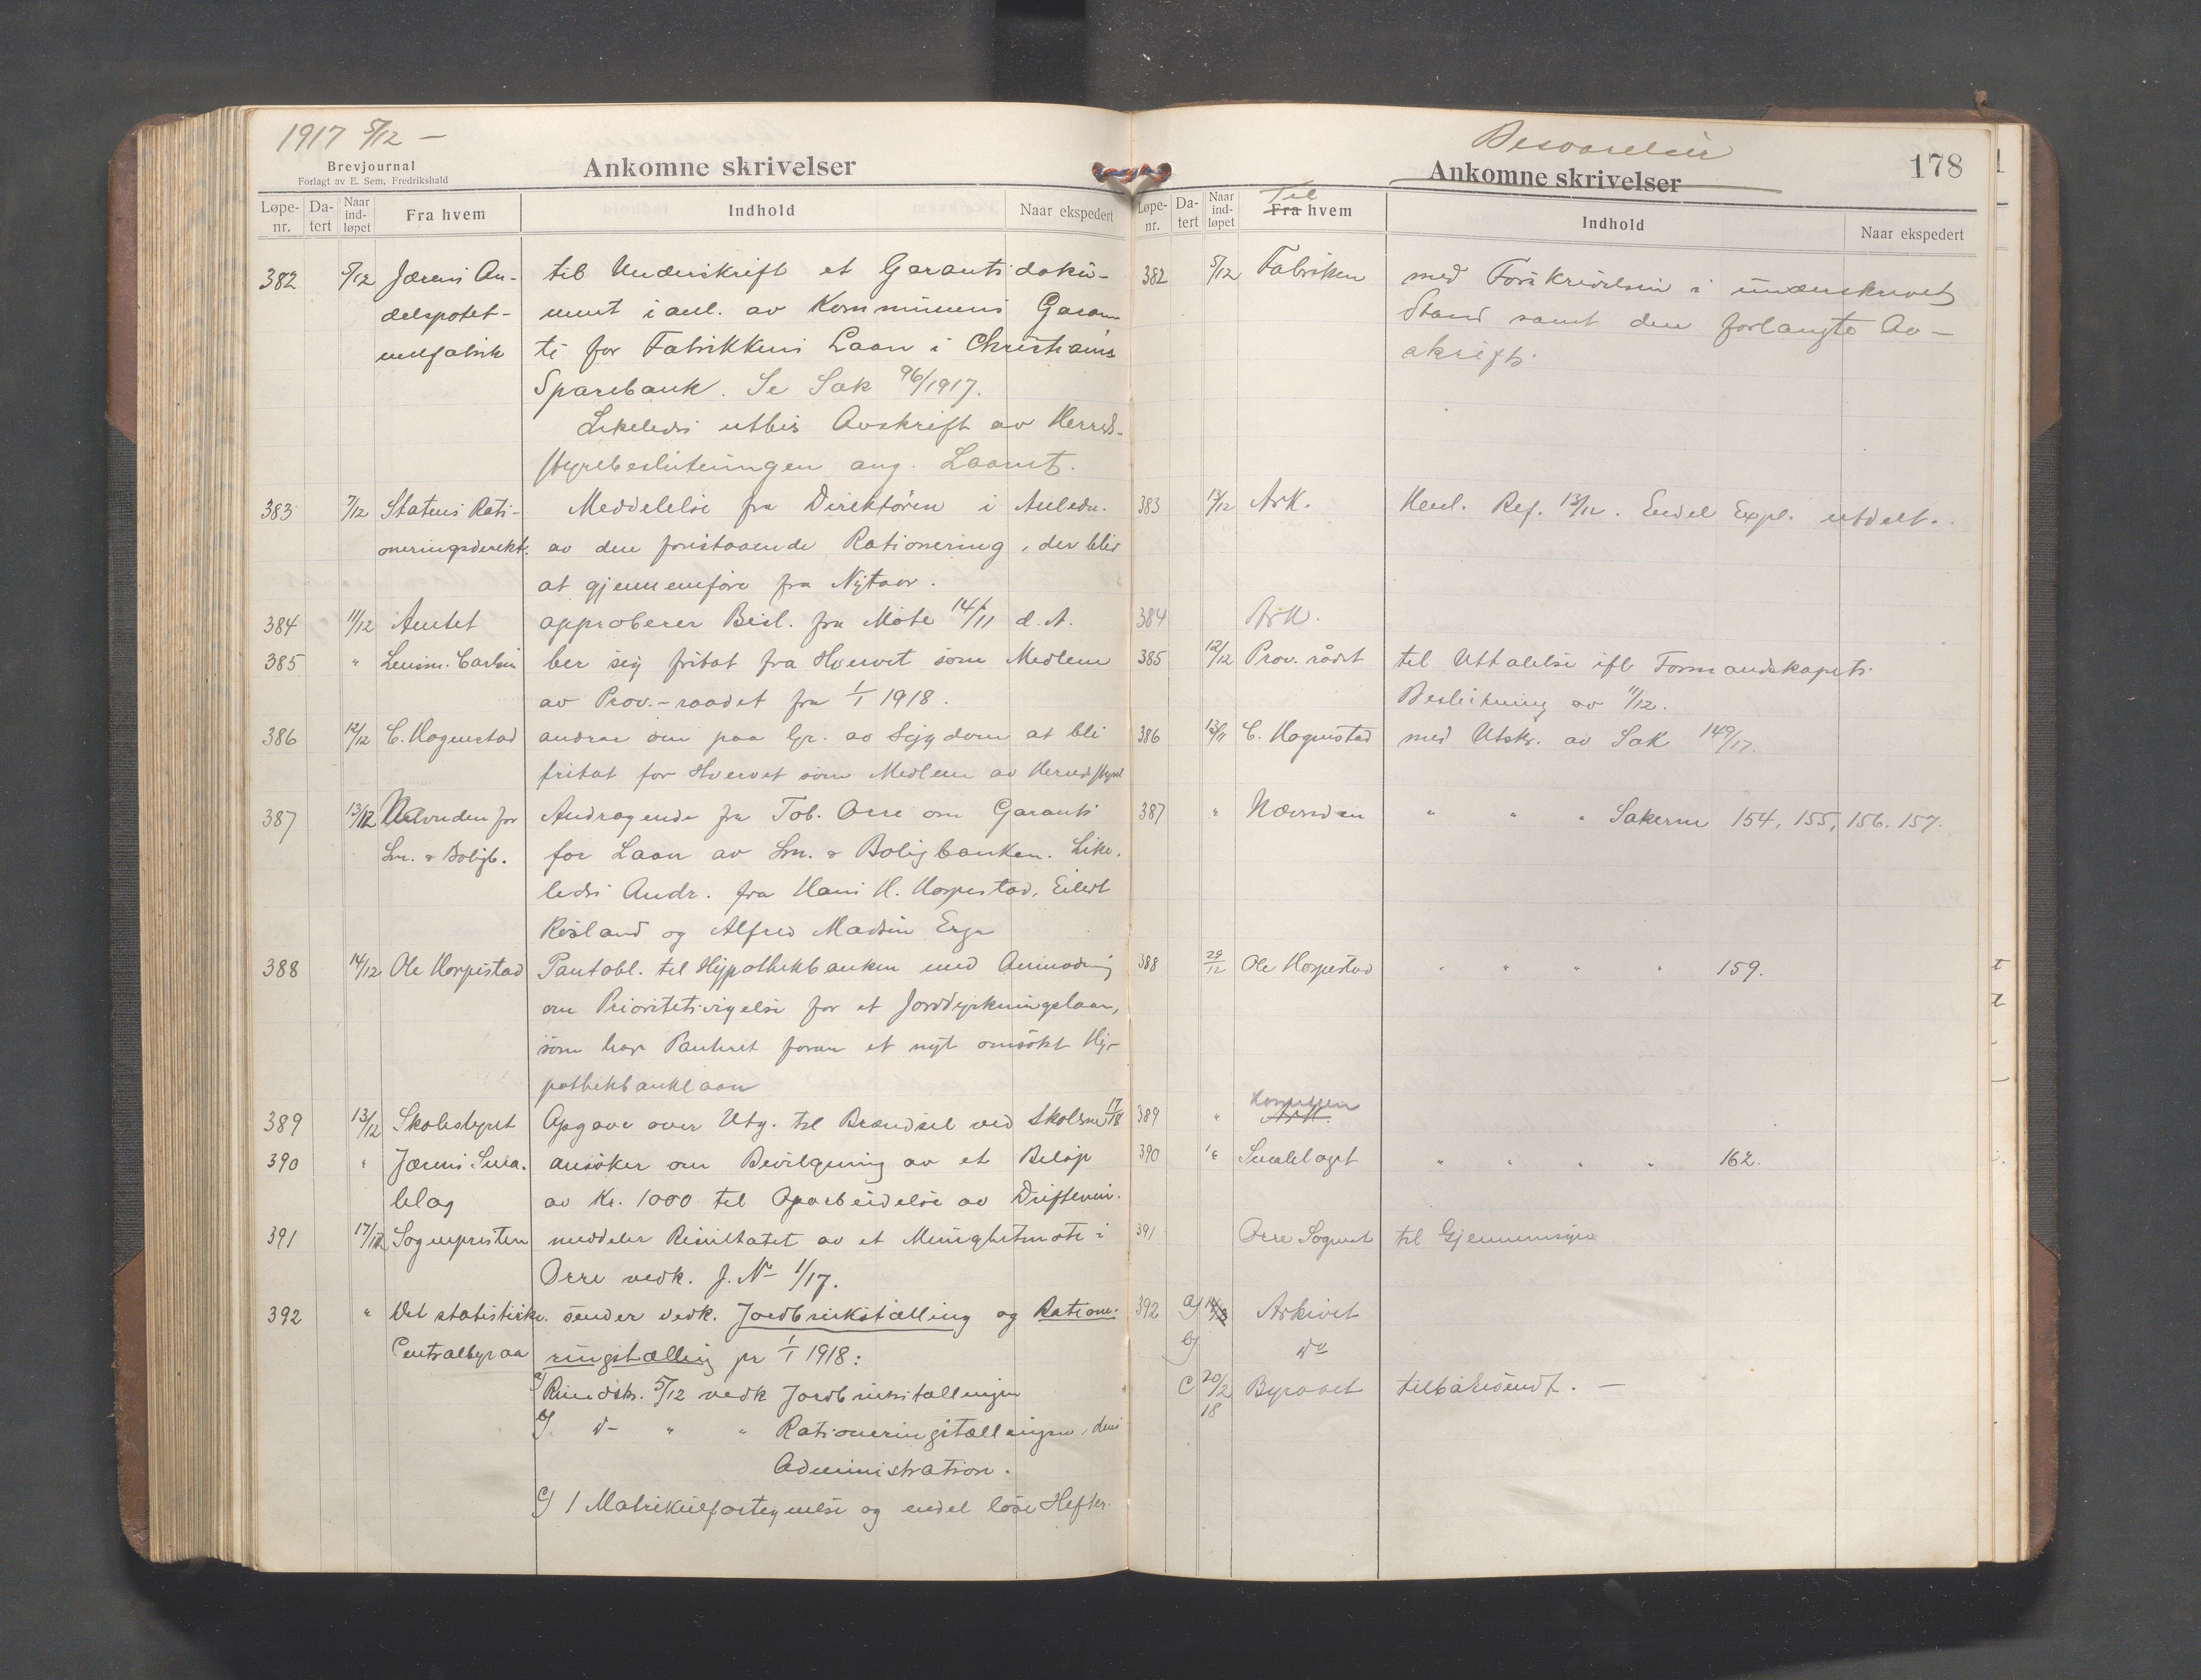 1917 5/12 —
Brevjournal
Forlagt av E. Sem, Fredrikshald
Ankomne skrivelser
Løpe-nr.
Da-tert
Naar ind-løpet
Fra hvem
Indhold
Naar ekspedert
382 5/12 Jærens An- til Underskrift et Garantidoku-
delspotet- ment i anl. av Kommunens Garan-
melfabrik ti for Fabrikkens Laan i Christians
Sparebank. Se Sak 96/1917.
Likeledes utbes Avskrift av Herreds-
styrebeslutningen ang. Laanet.
383 7/12 Statens Rati- Meddelelse fra Direktøren i Anledn.
oneringsdirekt. av den forestaaende Rationering, der blir
at gjennemføre fra Nytaar.
384 11/12 Amtet approberer Besl. fra Møte 14/11 d. A.
385 " Lensm. Carlsen ber sig fritat fra Hvervet som Medlem
av Prov.-raadet fra 1/1 1918.
386 12/12 C. Hognestad andrar om paa Gr. av Sygdom at bli
fritat for Hvervet som Medlem av Herredsstyret
387 13/12 Nævnden for Andragende fra Tob. Orre om Garanti
Sm. & Boligb. for Laan av Sm. & Boligbanken. Like-
ledes Andr. fra Hans H. Horpestad, Eilert
Røsland og Alfred Madsen Erga
388 14/12 Ole Horpestad Pantobl. til Hypothekbanken med Anmodning
om Prioritetsvigelse for et Jorddyrkningslaan,
som har Panteret foran et nyt omsøkt Hy-
pothekbanklaan
389 13/12 Skolestyret Opgave over Utg. til Brændsel ved Skolerne 17/18
390 " Jærens Smа- ansøker om Bevilgning av et Beløp
lelag av Kr. 1000 til Oparbeidelse av
391 17/12 Sognepresten meddeler Resultatet av et Menighetsmøte i
Orre vedk. J. No 1/17.
392 " Det statistiske sender vedk. Jordbrukstælling og Ratione-
Centralbyraa ringstælling pr 1/1 1918:
a) Rundskr. 5/12 vedk Jordbrukstællingen
b) do " " Rationeringstællingen, dens
Administration.
c) 1 Matrikulfortegnelse og endel løse Hefter.
Besvarelser
Ankomne skrivelser
178
Løpe-nr.
Da-tert
Naar ind-løpet
Til
Fra hvem
Indhold
Naar ekspedert
382 5/12 Fabriken med Forskrivelsen i underskrevet
Stand samt den forlangte Av-
skrift.
383 13/12 Ark. Henl. Ref. 13/12. Endel Expl. utdelt.
384 Ark.
385 12/12 Prov. rådet til Uttalelse ifl. Formandskapets
Beslutning av 11/12.
386 13/11 C. Hognestad med Utskr. av Sak 149/17.
387 " Nævnden " " " Sakerne 154, 155, 156. 157.
388 29/12 Ole Horpestad " " " " 159.
389 " Ark.
390 " Smalelaget " " " " 162.
391 Orre Sogn til Gjennemsyn
392 a) 14/3 Arkivet
b) do
c 20/2 18 Byraaet tilbakesendt. —